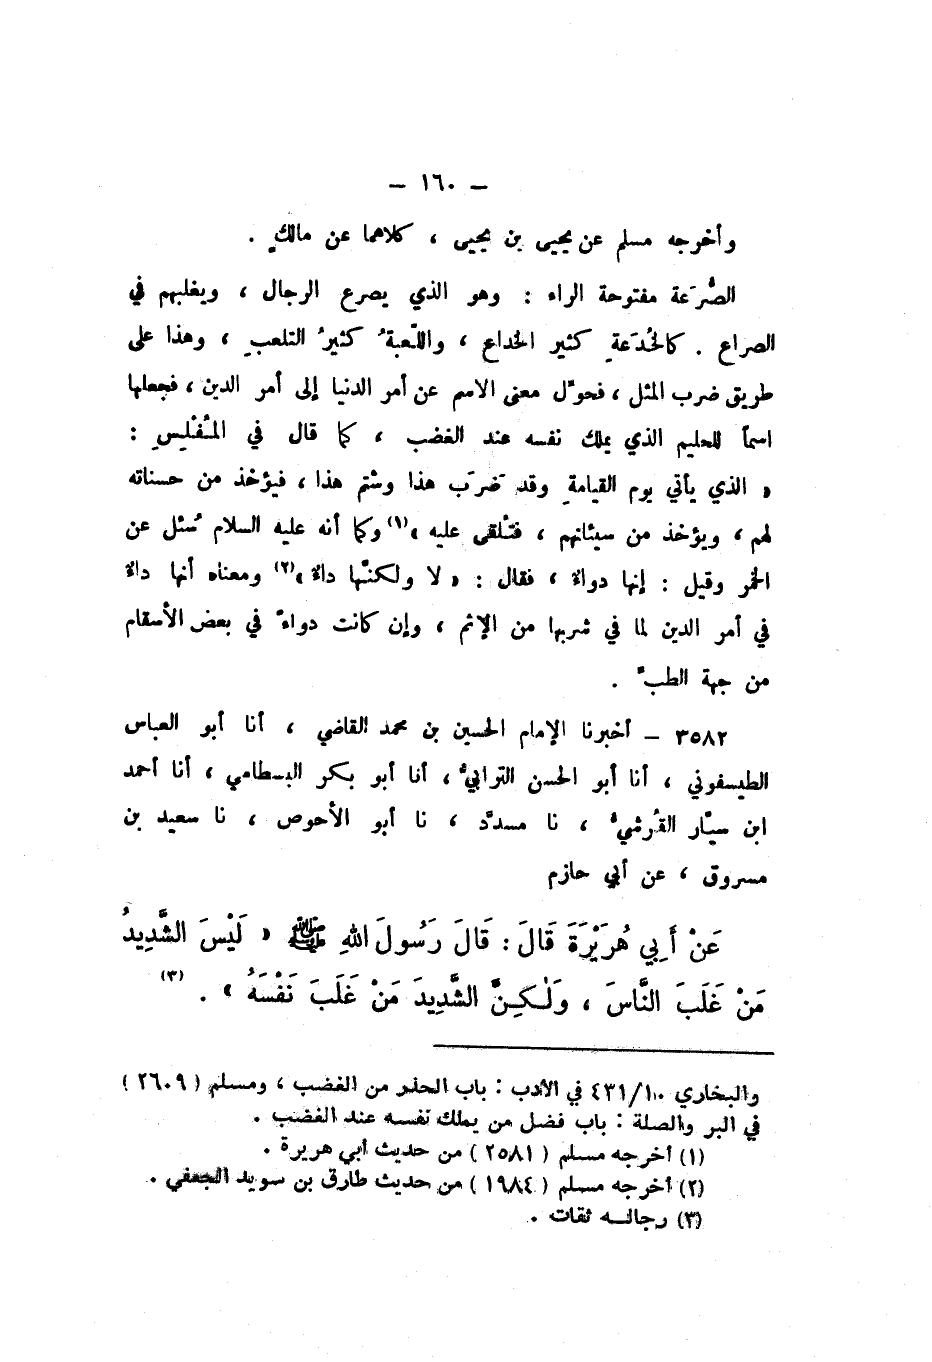 — ١٦٠ —
وأخرجه مسلم عن يحيى بن يحيى ، كلاهما عن مالكٍ .
الصُّرَعة مفتوحة الراء : وهو الذي يصرع الرجال ، ويغلبهم في
الصراع . كالخُدَعةِ كثير الخداع ، واللّعبةُ كثيرُ التلعبِ ، وهذا على
طريق ضرب المثل ، فحوّل معنى الاسم عن أمر الدنيا إلى أمر الدين ، فجعلها
اسماً للحليم الذي يملك نفسه عند الغضب ، كما قال في المُفْلِيسِ :
« الذي يأتي يوم القيامةِ وقد ضَرَب هذا وشتم هذا ، فيؤخذ من حسناته
لهم ، ويؤخذ من سيئاتهم ، فتُلقى عليه »(١) وكما أنه عليه السلام سُئل عن
الخمر وقيل : إنها دواءٌ ، فقال : « لا ولكنّها داءٌ »(٢) ومعناه أنها داءٌ
في أمر الدين لما في شربها من الإثم ، وإن كانت دواءً في بعض الأسقام
من جهة الطبّ .
٣٥٨٢ — أخبرنا الإمام الحسين بن محمد القاضي ، أنا أبو العباس
الطيسفوني ، أنا أبو الحسن الترابيُّ ، أنا أبو بكر البسطامي ، أنا أحمد
ابن سيّار القُرشيُّ ، نا مسدّد ، نا أبو الأحوص ، نا سعيد بن
مسروق ، عن أبي حازم
عَنْ أَبِي هُرَيْرَةَ قَالَ : قَالَ رَسُولَ اللهِ ﷺ « لَيْسَ الشَّدِيدُ
مَنْ غَلَبَ النَّاسَ ، وَلٰكِنَّ الشَّدِيدَ مَنْ غَلَبَ نَفْسَهُ » . (٣)
والبخاري ٤٣١/١٠ في الأدب : باب الحذر من الغضب ، ومسلم ( ٢٦٠٩ )
في البر والصلة : باب فضل من يملك نفسه عند الغضب .
(١) أخرجه مسلم ( ٢٥٨١ ) من حديث أبي هريرة .
(٢) أخرجه مسلم ( ١٩٨٤ ) من حديث طارق بن سويد الجعفي .
(٣) رجاله ثقات .